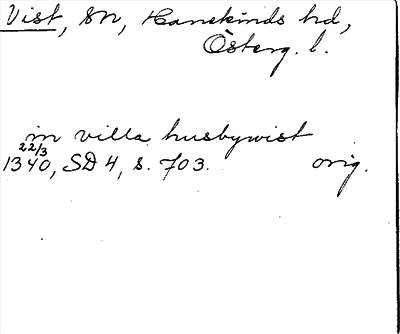 Vist, sn, Hanekinds hd,
Österg. l.
in villa husbywist
22/3
1340, SD 4, s. 703. orig.